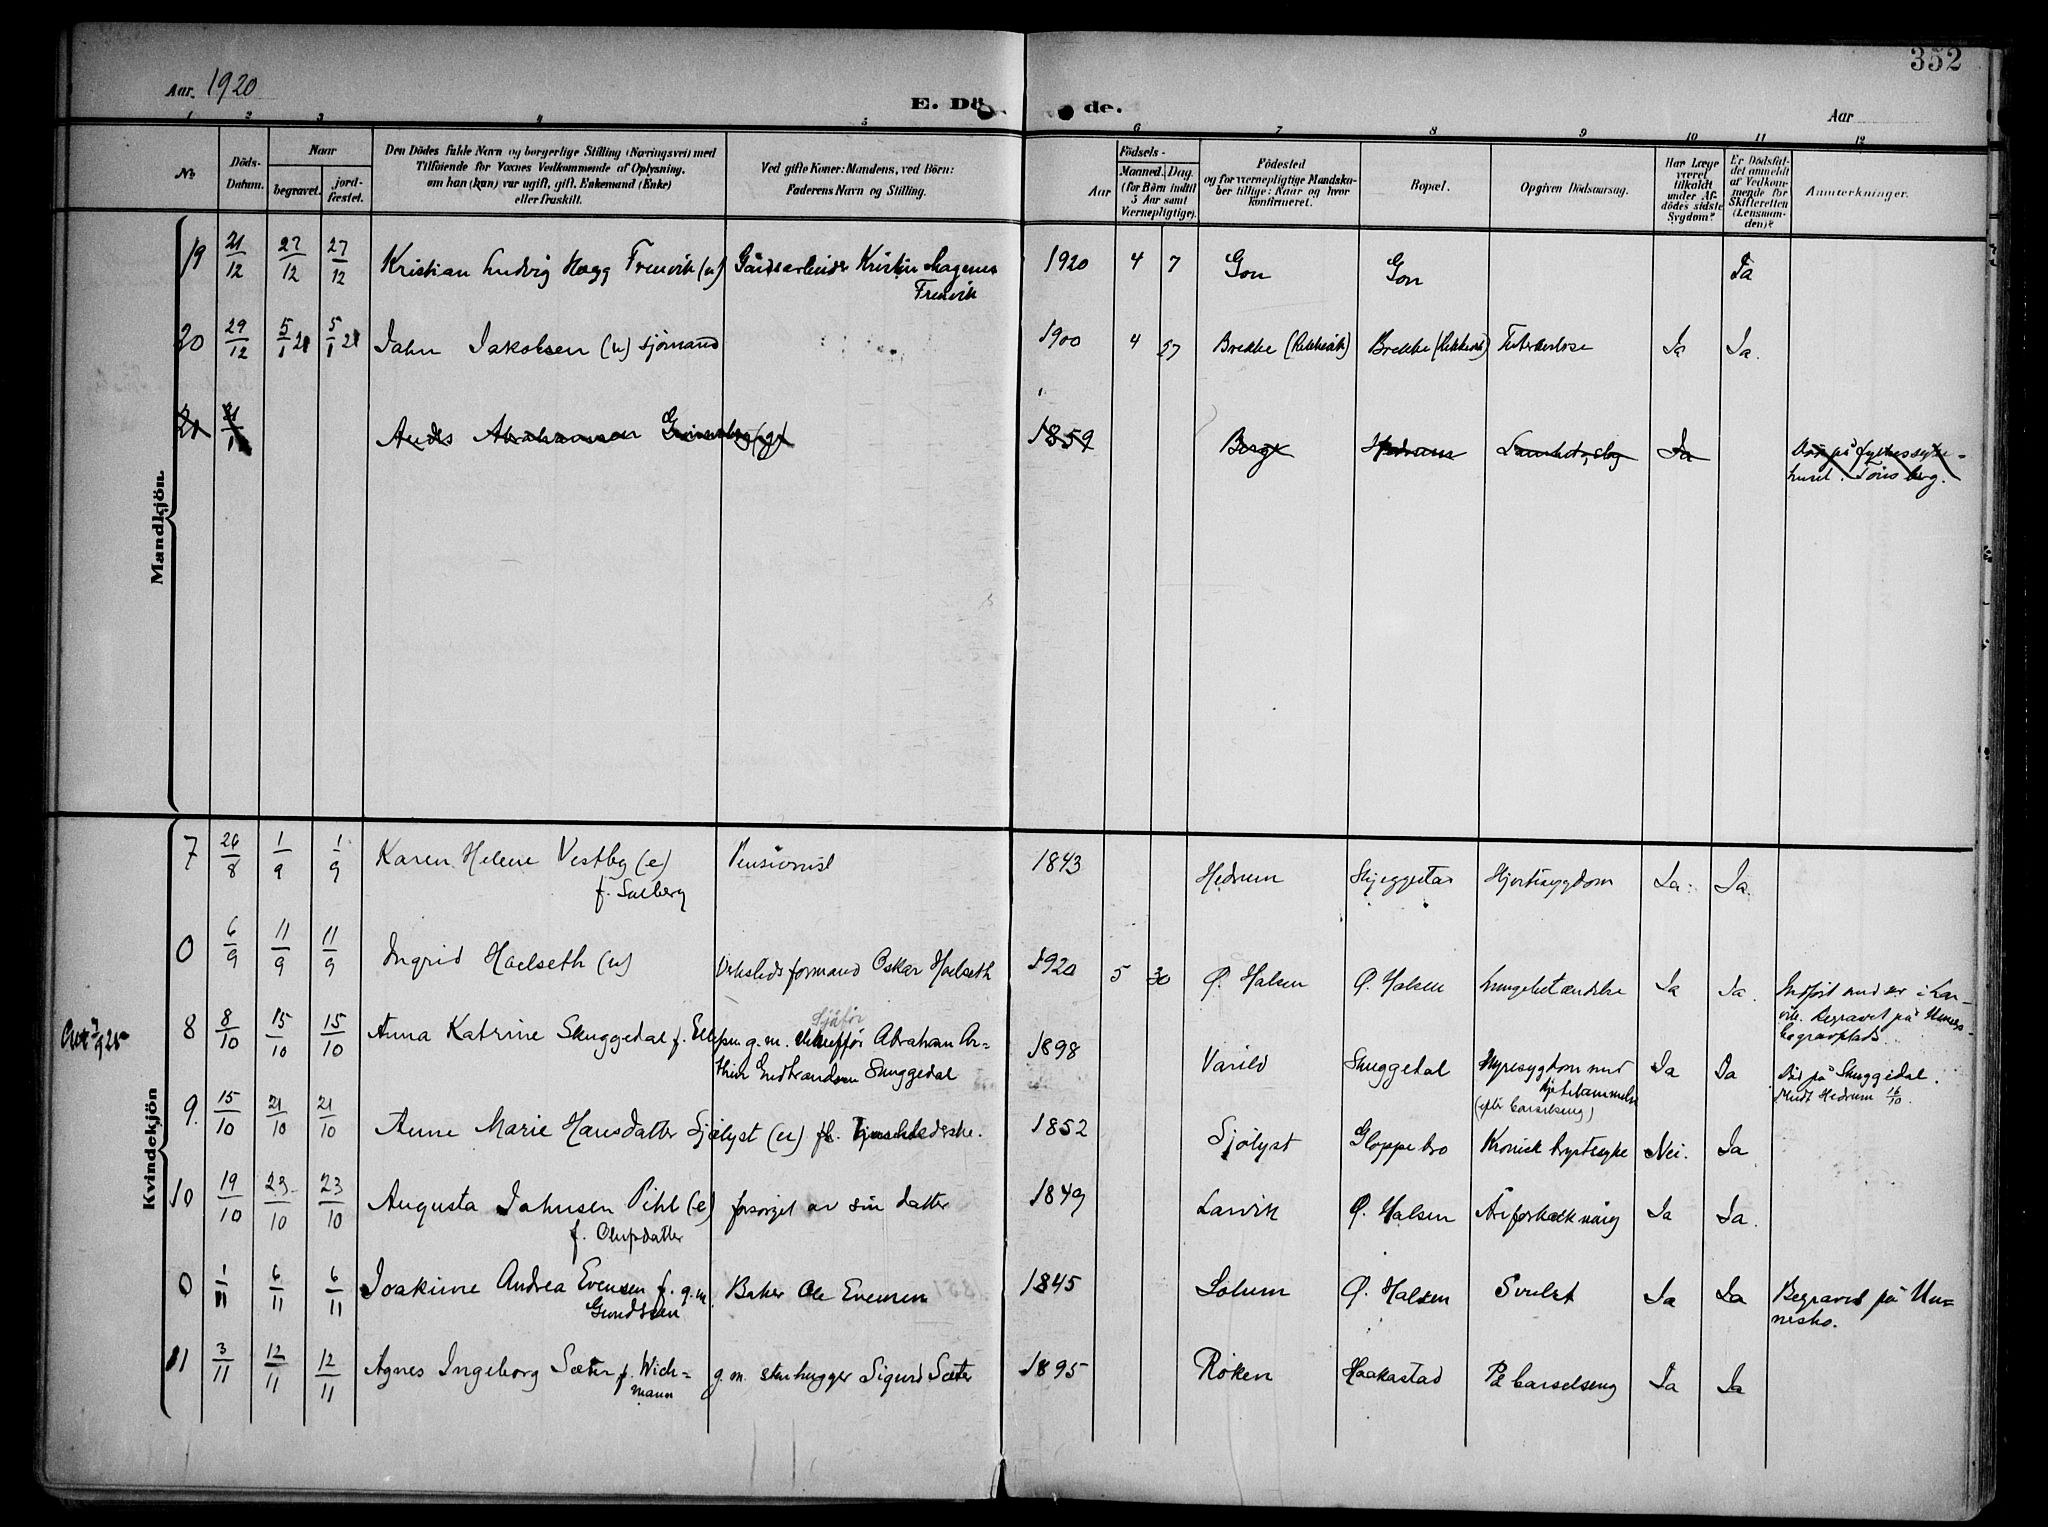 352
Aar. 1920
E. Dö de.
Aar
1 2 3 4 5 6 7 8 9 10 11 12
No
Döds-Datum.
Naar
begravet.
jord-fæstet.
Den Dödes fulde Navn og borgerlige Stilling (Næringsvei) med
Tilföiende for Voxnes Vedkommende af Oplysning,
om han (hun) var ugift, gift, Enkemand (Enke)
eller fraskilt.
Ved gifte Koner: Mandens, ved Börn:
Faderens Navn og Stilling.
Födsels-
Aar
Maaned. Dag.
(for Börn indtil
5 Aar samt
Værnepligtige).
Födested
og for værnepligtige Mandska-
ber tillige: Naar og hvor
konfirmeret.
Bopæl.
Opgiven Dödsaarsag.
Har Læge
været
tilkaldt
under Af-
dödes sidste
Sygdom?
Er Dödsfal-
det anmeldt
af Vedkom-
mende for
Skifteretten
(Lensman-
den)?
Anmærkninger.
Mandkjön.
19 21/12 27/12 27/12 Kristian Ludvig Hagg Fremvik (u) Gårdsarbeider Kristian Magnus 1920 4 7 Gon Gon Ja
20 29/12 5/1 21 5/1 21 Jahn Jakobsen (u) sjömand 1900 4 27 Brekke Brekke Tuberkulose Ja Ja.
21 Anders Abrahamson 1859 Berge Hedrum Ja Död på fylkessyke-
huset. Tönsberg.
Kvindekjön
7 26/8 1/9 1/9 Karen Helene Vestby (e) Pensionist 1843 Hedrum Skjeggestad Hjertesygdom Ja. Ja.
f. Solberg
0 6/9 11/9 11/9 Ingrid Haelseth (u) Verkstedsformand Oskar Haelseth 1920 5 30 Ö. Halsen Ö. Halsen Lungebetændelse Ja Ja.
Begravet på Undersbo gravplads.
8 8/10 15/10 15/10 Anna Katrine Skuggedal f. Ellefsen g.m. Sjåför Abraham Ar-
thur Gudbrandsen Skuggedal 1898 Varild Skuggedal Nyresygdom med
(efter barselseng) Ja Ja Död på Skuggedal.
Meldt Hedrum 16/10.
9. 15/10 21/10 21/10 Anne Marie Hansdatter Sjölyst (u) 1852 Sjölyst Gloppebro Kronisk brystsyke Nei. Ja
10 19/10 23/10 23/10 Augusta Johnsen Pihl (e) forsörget av sin datter 1849 Larvik Ö. Halsen Åreforkalkning Ja Ja.
f. Olufsdatter
0 1/11 6/11 6/11 Joakime Andrea Evensen f. g.m. Baker Ole Evensen 1845 Solum Ö. Halsen Svulst Ja Ja Begravet på Un-
Gundersen nesbo.
11 3/11 12/11 12/11 Agnes Ingeborg Sæter f. Wich- g.m. stenhugger Sigurd Sæter 1895 Röken Haakestad På barselseng Ja Ja
mann